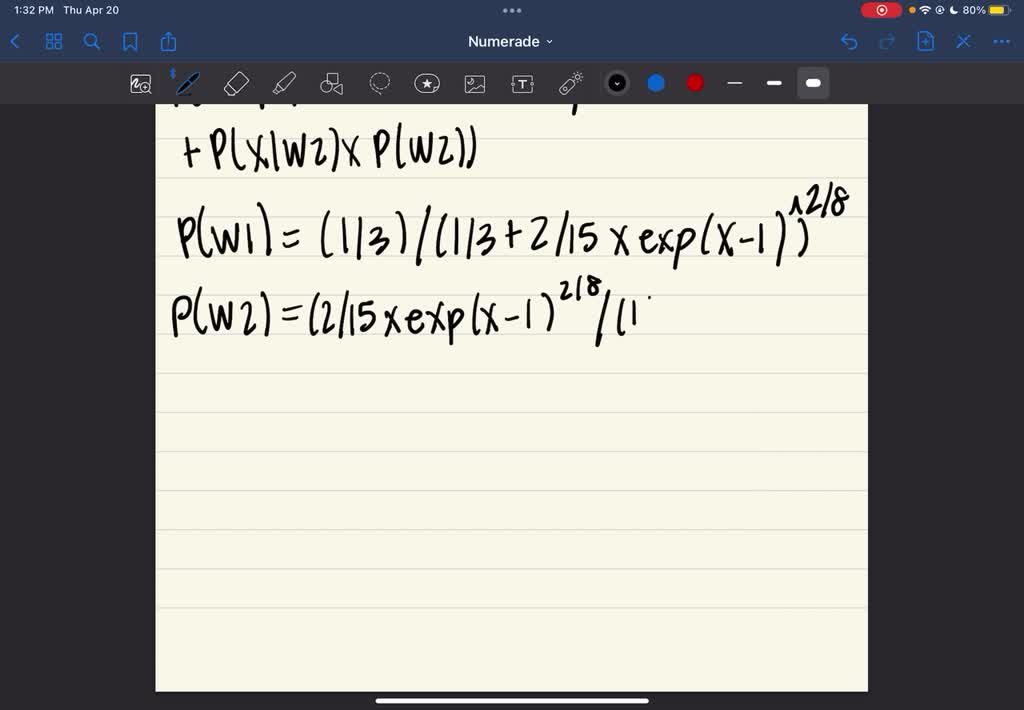 1:32 PM Thu Apr 20
80%
Numerade
+ P(X|W2) x P(W2))
P(W1) = (1/3)/(1/3 + 2/15 x exp(x-1))^2/8
P(W2) = (2/15 x exp(x-1)^2/8/(1